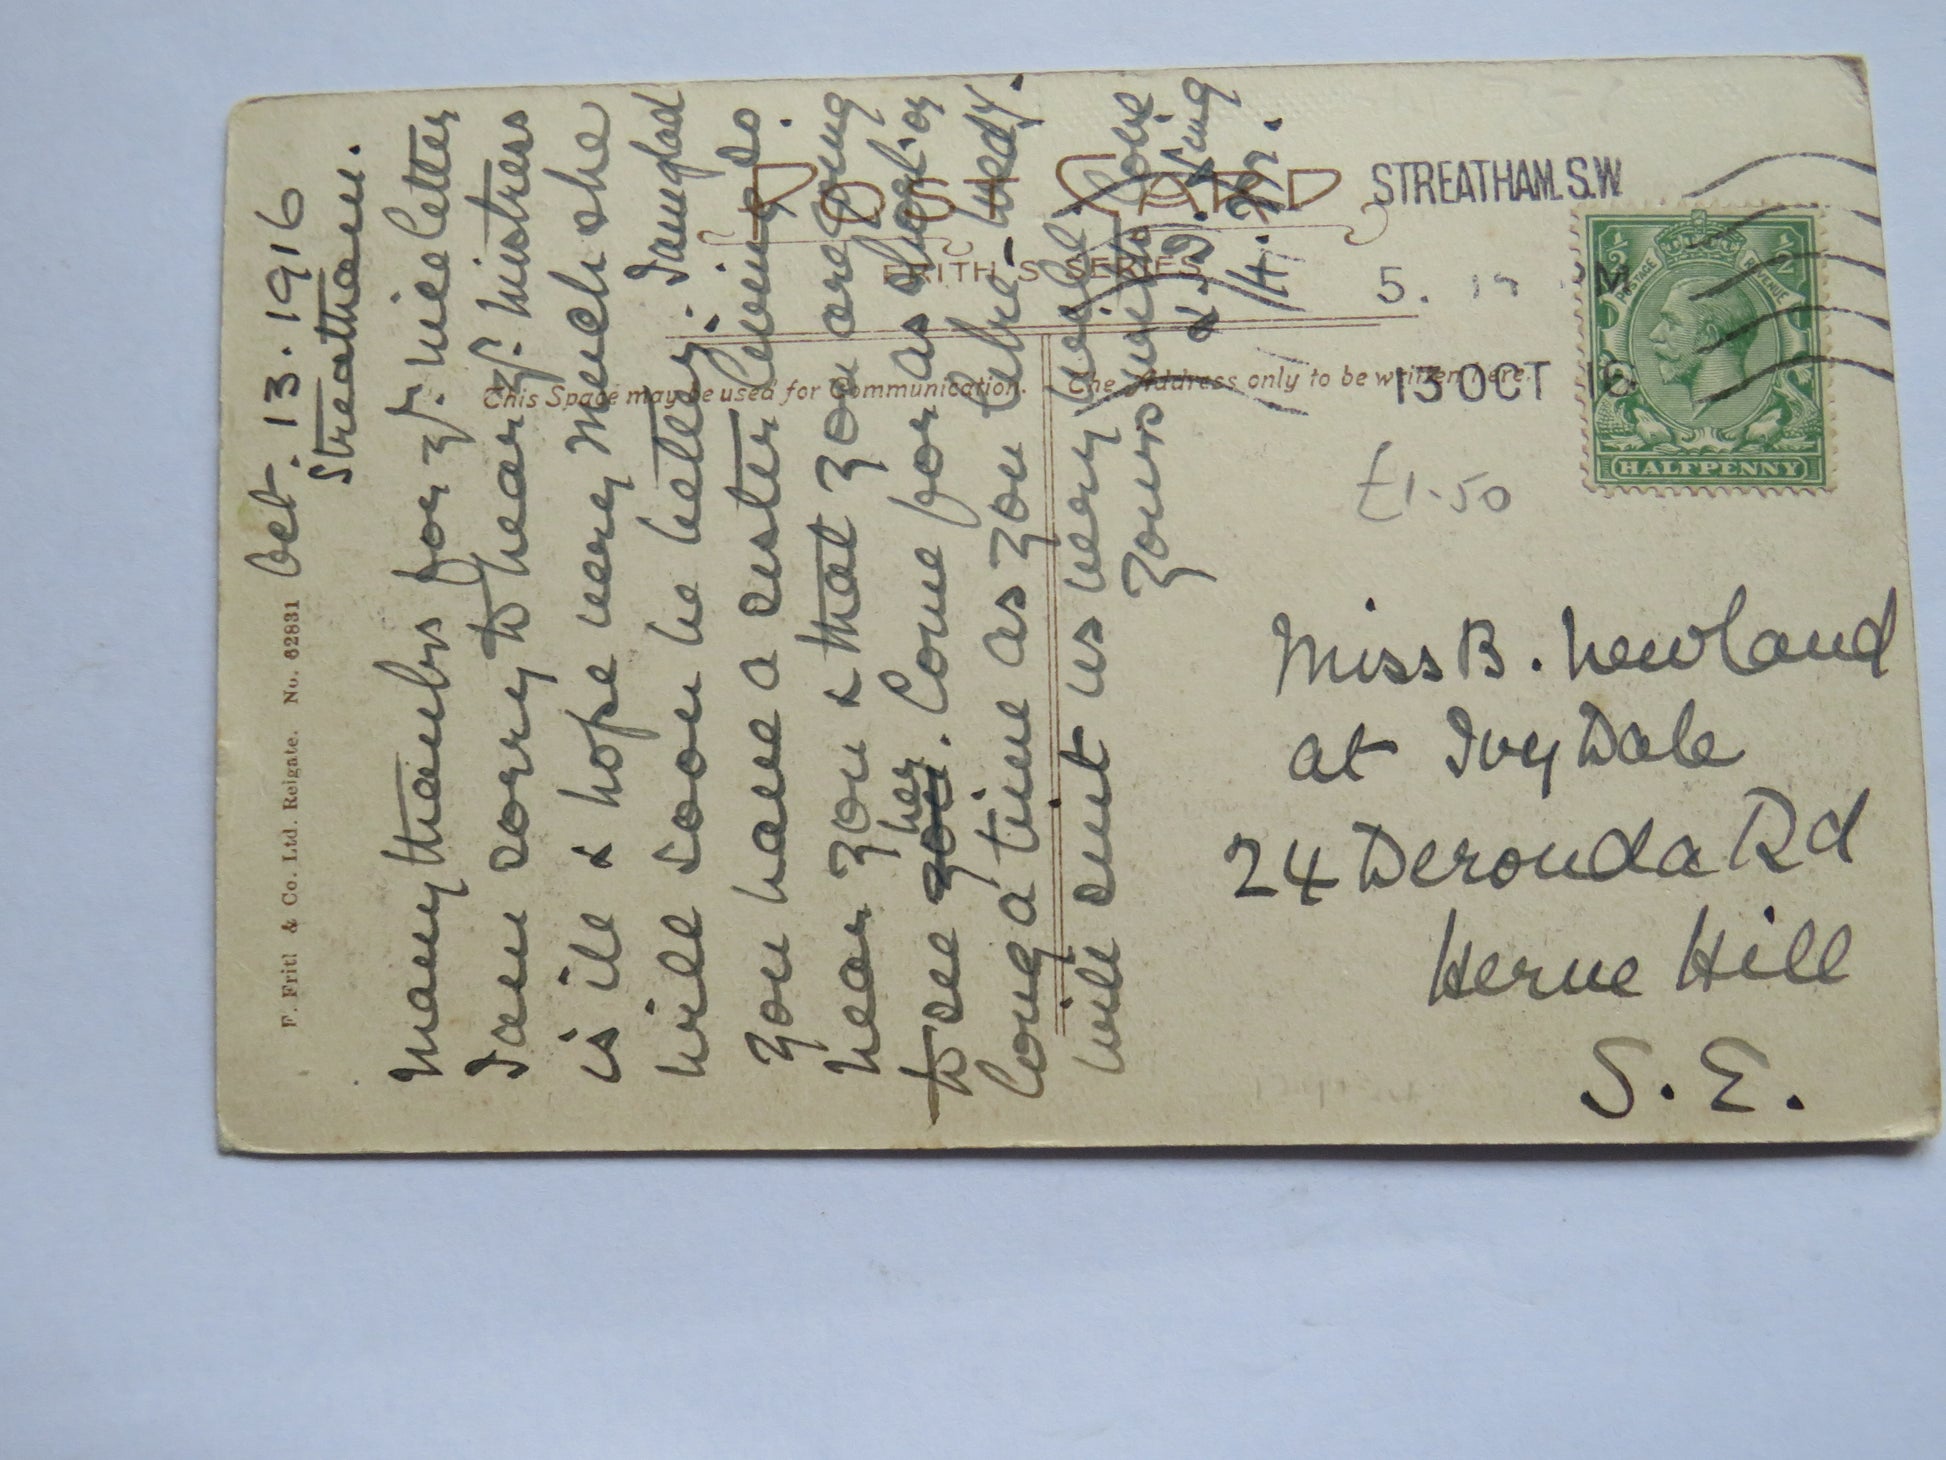 POST CARD
FRITH'S SERIES
This Space may be used for Communication.
The Address only to be written here.
F. Frith & Co. Ltd. Reigate. No. 62831
STREATHAM. S.W.
5.
13 OCT 16
POSTAGE REVENUE
½ ½
HALFPENNY
£1.50
Oct. 13. 1916
Streatham.
Many thanks for yr. nice letter
I am sorry to hear yr. Mistress
is ill & hope very much she
will soon be better. I am glad
you have a sister living so
near you & that you are going
to see her. Come for as short or
long a time as you like
will suit us very well.
Yours with love
Miss B. Newland
at Ivy Dale
24 Deronda Rd
Herne Hill
S. E.